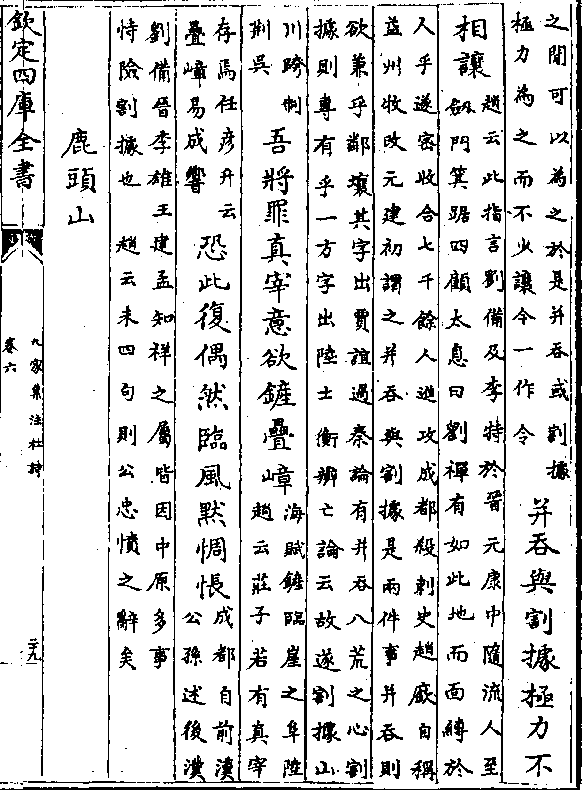 之間可以為之於是并吞或割據
極力為之而不少讓今一作令
并吞與割據極力不
相讓
趙云此指言劉備及李特於晉元康中隨流人至
劔門箕踞四顧太息曰劉禪有如此地而面縛於
人乎遂密收合七千餘人進攻成都殺刺史趙廞自稱
益州牧改元建初謂之并吞與割據是兩件事并吞則
欲兼乎鄰壤其字出賈誼過秦論有并吞八荒之心割
據則專有乎一方字出陸士衡辨亡論云故遂割據山
川跨制
荆吳
吾將罪真宰意欲鏟疊嶂
海賦鏟臨崖之阜陸
趙云莊子若有真宰
存焉任彦升云
疊嶂易成響
恐此復偶然臨風默惆悵
成都自前漢
公孫述後漢
劉備晉李雄王建孟知祥之屬皆因中原多事
恃險割據也 趙云末四句則公忠憤之辭矣
鹿頭山
欽定四庫全書
九家集注杜詩
卷六
二十九